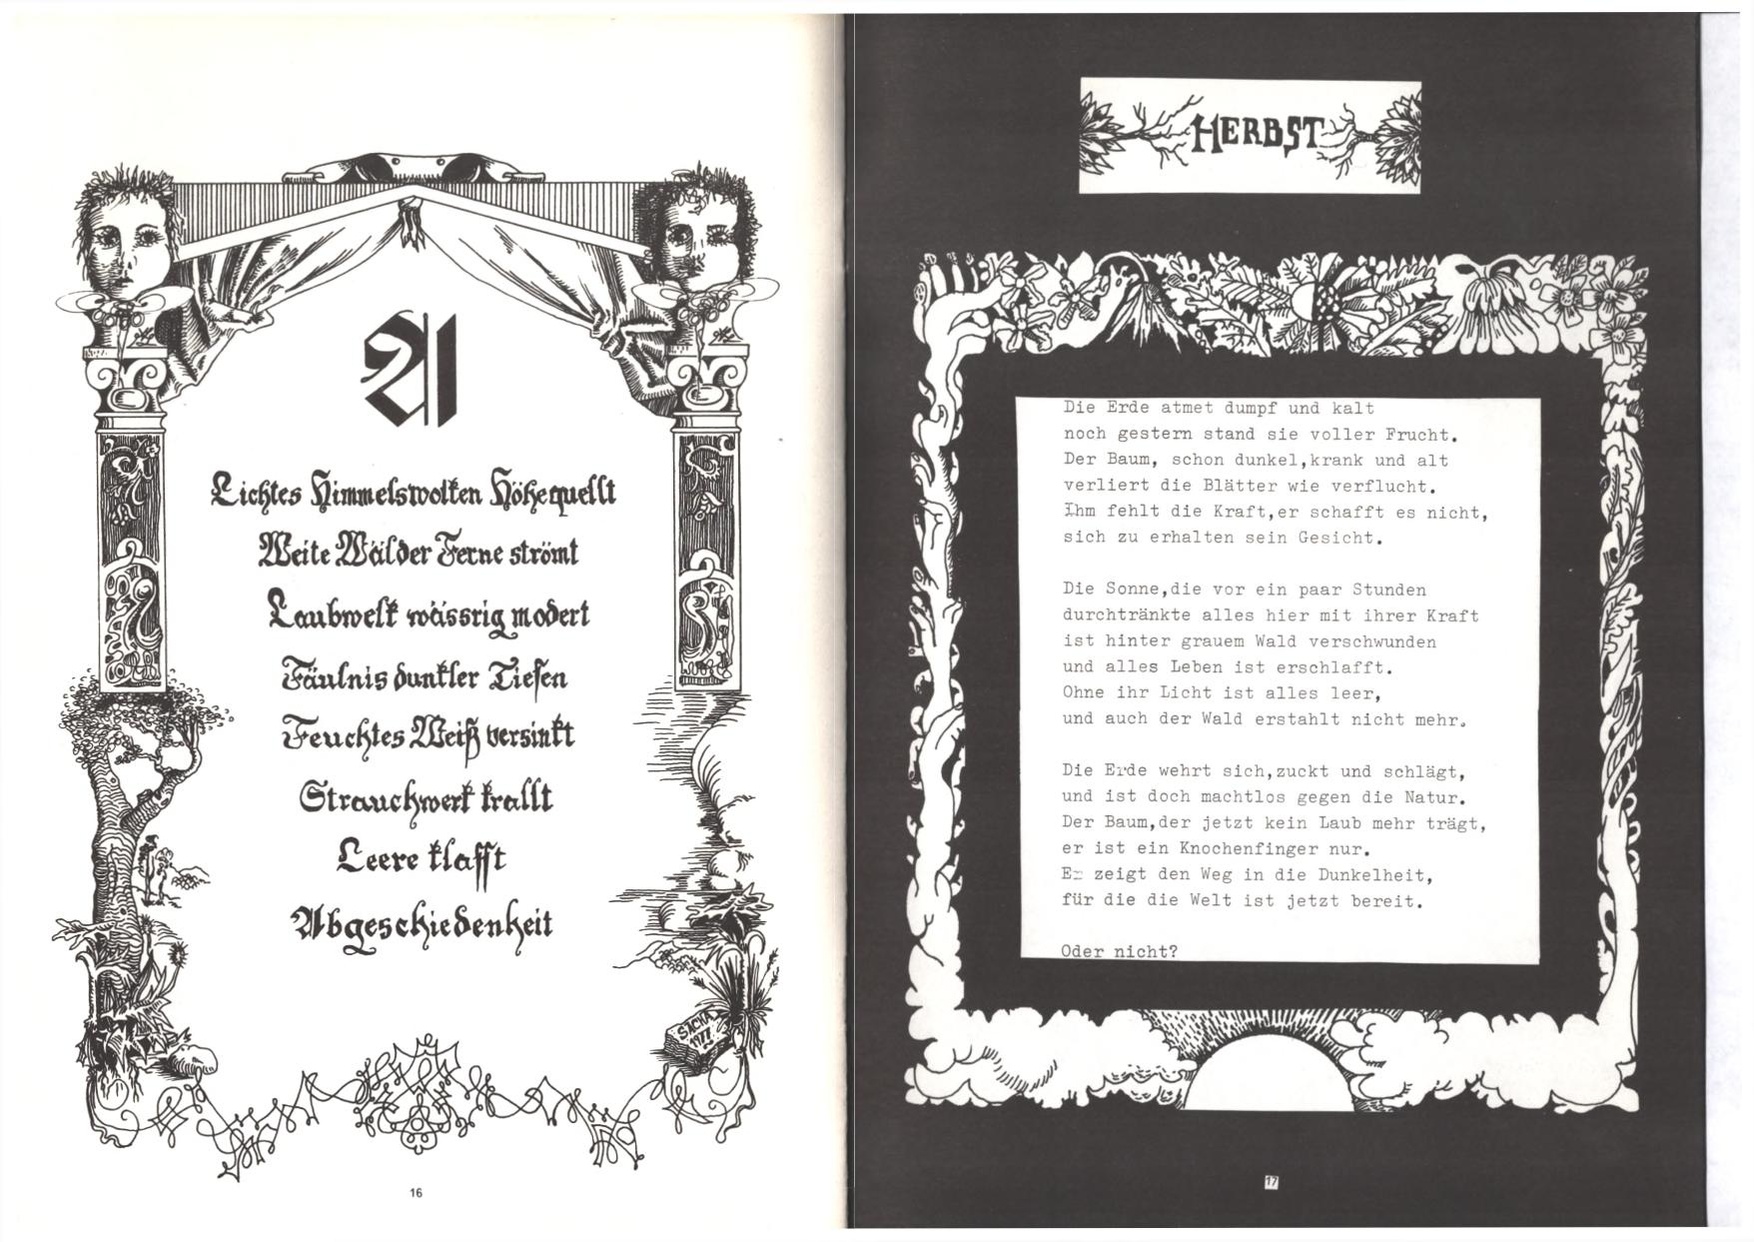 A
Lichtes Himmelswolken Höhe quellt
Weite Wälder Ferne strömt
Laubwelk wässrig modert
Fäulnis dunkler Tiefen
Feuchtes Weiß versinkt
Strauchwerk krallt
Leere klafft
Abgeschiedenheit
SACHA
1977
16
HERBST
Die Erde atmet dumpf und kalt
noch gestern stand sie voller Frucht.
Der Baum, schon dunkel,krank und alt
verliert die Blätter wie verflucht.
Ihm fehlt die Kraft,er schafft es nicht,
sich zu erhalten sein Gesicht.
Die Sonne,die vor ein paar Stunden
durchtränkte alles hier mit ihrer Kraft
ist hinter grauem Wald verschwunden
und alles Leben ist erschlafft.
Ohne ihr Licht ist alles leer,
und auch der Wald erstahlt nicht mehr.
Die Erde wehrt sich,zuckt und schlägt,
und ist doch machtlos gegen die Natur.
Der Baum,der jetzt kein Laub mehr trägt,
er ist ein Knochenfinger nur.
Er zeigt den Weg in die Dunkelheit,
für die die Welt ist jetzt bereit.
Oder nicht?
17